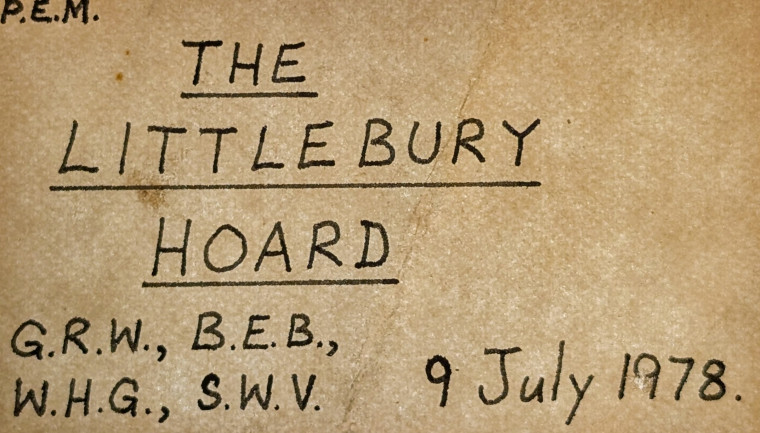 P.E.M.
THE
LITTLEBURY
HOARD
G.R.W., B.E.B.,
W.H.G., S.W.V.
9 July 1978.